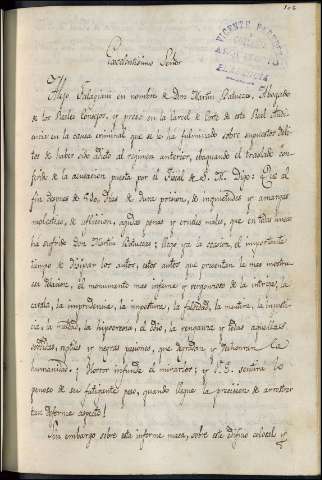 Excelentísimo Señor
en nombre de Don Martin Batuecas, Abogado
de los Reales Consejos, y preso en la Carcel de Corte de esta Real Audi
encia en la causa criminal que se le ha fulminado sobre supuestos deli
tos de haber sido adicto al regimen anterior, evaquando el traslado con
ferido de la acusacion puesta por el Fiscal de S. M. Digo: Que al
fin despues de dias de dura prision, de inquietudes y amargas
molestias, de afliccion, agudas penas y crueles males, que en todas lineas
ha sufrido Don Martin Batuecas; llego ya la ocasion, el importante
tiempo de los autos, estos autos que presentan la mas monstru
osa delacion, el monumento mas infame y vergonzoso de la intriga, la
cabala, la imprudencia, la impostura, la falsedad, la mentira, la injusti
cia, la maldad, la hipocresia, el odio, la venganza y todas aquellas
sordidas, reptiles y negras pasiones, que degradan y deshonran la
humanidad; Horror infunde el mirarlos; y V.E. sentirá lo
penoso de su fatigante peso, quando llegue la precision de arrostrar
tan deforme aspecto!
Sin embargo sobre esta informe masa, sobre este edificio colosal y
VICENTE
VALENCIA